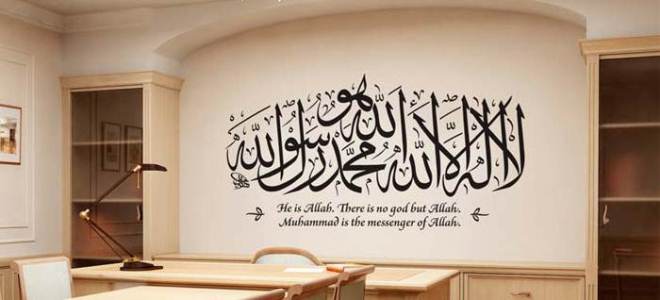 هو الله
لا اله الا الله محمد رسول الله
He is Allah. There is no god but Allah.
Muhammad is the messenger of Allah.